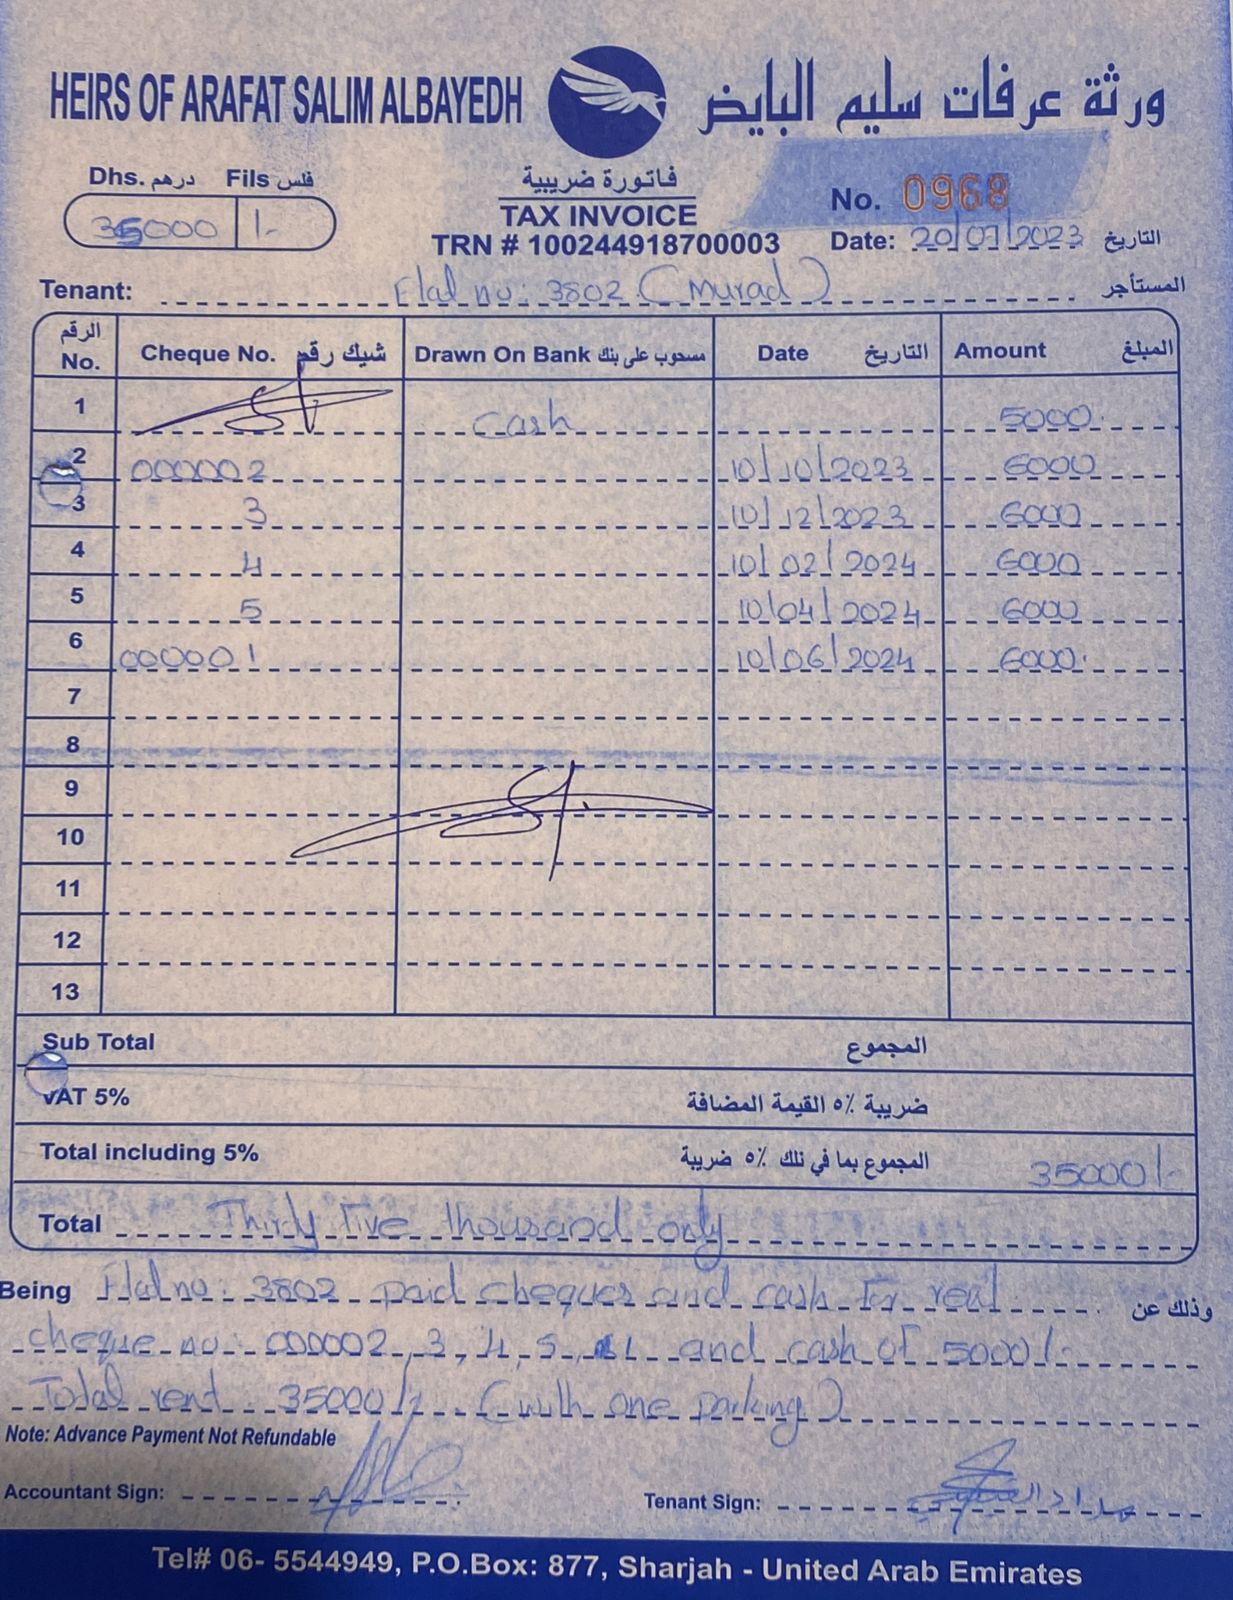 HEIRS OF ARAFAT SALIM ALBAYEDH ورثة عرفات سليم البايض
Dhs. درهم Fils فلس
35000 /-
فاتورة ضريبية
TAX INVOICE
TRN # 100244918700003
No. 0968
Date: 20/07/2023 التاريخ
Tenant: Flat no: 3802 (Murad) المستأجر
الرقم No. Cheque No. شيك رقم Drawn On Bank مسحوب على بنك Date التاريخ Amount المبلغ
1 Cash 5000.
2 000002 10/10/2023 6000
3 3 10/12/2023 6000
4 4 10/02/2024 6000
5 5 10/04/2024 6000
6 000001 10/06/2024 6000.
7
8
9
10
11
12
13
Sub Total المجموع
VAT 5% ضريبة ٥٪ القيمة المضافة
Total including 5% المجموع بما في ذلك ٥٪ ضريبة 35000/-
Total Thirty five thousand only
Being Flat no: 3802 paid cheques and cash for rent وذلك عن
cheque no: 000002, 3, 4, 5, 1 and cash of 5000/-
Total rent 35000/- (with one parking)
Note: Advance Payment Not Refundable
Accountant Sign:
Tenant Sign:
Tel# 06- 5544949, P.O.Box: 877, Sharjah - United Arab Emirates